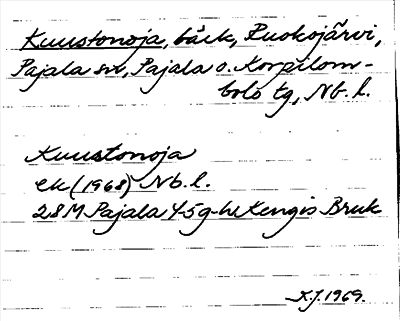 Kuustonoja, bäck, Ruokojärvi,
Pajala sn, Pajala o. Korpilom-
bolo tg, Nb. l.
Kuustonoja
ek (1968) Nb. l.
28M Pajala 4-5g-h Kengis Bruk
K.J. 1969.